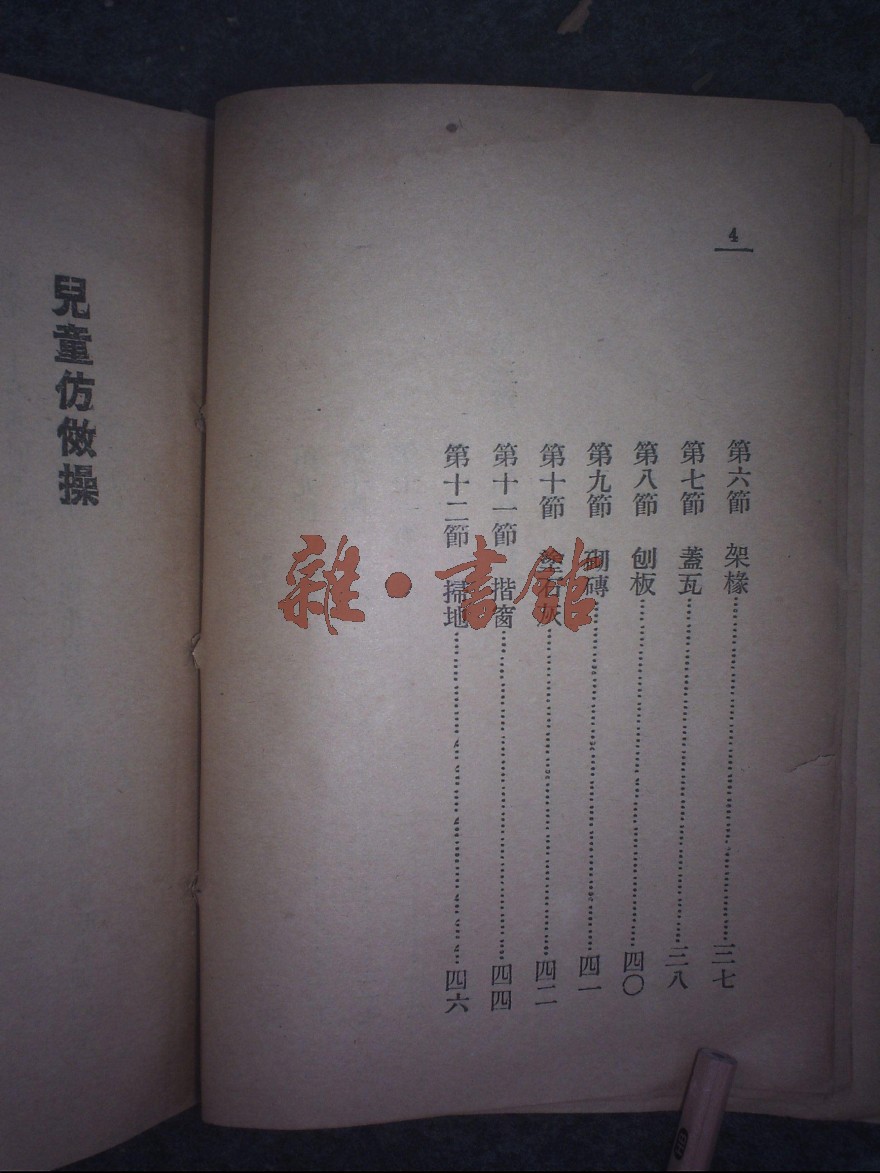 4
第六節 架椽……三七
第七節 蓋瓦……三八
第八節 刨板……四〇
第九節 砌磚……四一
第十節 塗石灰……四二
第十一節 揩窗……四四
第十二節 掃地……四六
兒童仿做操
雜·書館